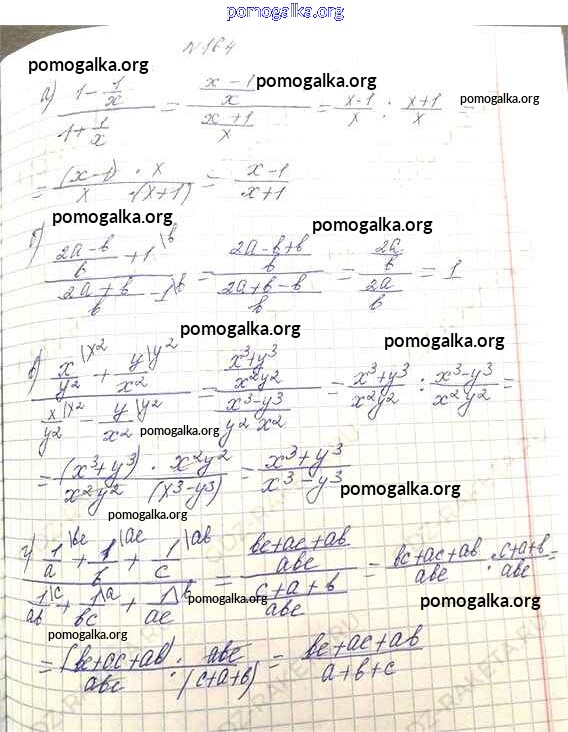 pomogalka.org
N 164
pomogalka.org
а) (1 - 1/x)/(1 + 1/x) = ((x - 1)/x)/((x + 1)/x) = (x-1)/x : (x+1)/x =
pomogalka.org
pomogalka.org
= ((x-1) · x)/(x · (x+1)) = (x-1)/(x+1)
pomogalka.org
pomogalka.org
б) ((2a-b)/b + 1\b)/((2a+b)/b - 1\b) = ((2a-b+b)/b)/((2a+b-b)/b) = (2a/b)/(2a/b) = 1
pomogalka.org
pomogalka.org
в) (x/y2\x2 + y/x2\y2)/(x/y2\x2 - y/x2\y2) = ((x³+y³)/(x²y²))/((x³-y³)/(y²x²)) = (x³+y³)/(x²y²) : (x³-y³)/(x²y²) =
pomogalka.org
= ((x³+y³) · x²y²)/(x²y² · (x³-y³)) = (x³+y³)/(x³-y³)
pomogalka.org
pomogalka.org
г) (1/a\bc + 1/b\ac + 1/c\ab)/(1/ab\c + 1/bc\a + 1/ac\b) = ((bc+ac+ab)/abc)/((c+a+b)/abc) = (bc+ac+ab)/abc : (c+a+b)/abc =
pomogalka.org
pomogalka.org
pomogalka.org
= ((bc+ac+ab) · abc)/(abc · (c+a+b)) = (bc+ac+ab)/(a+b+c)